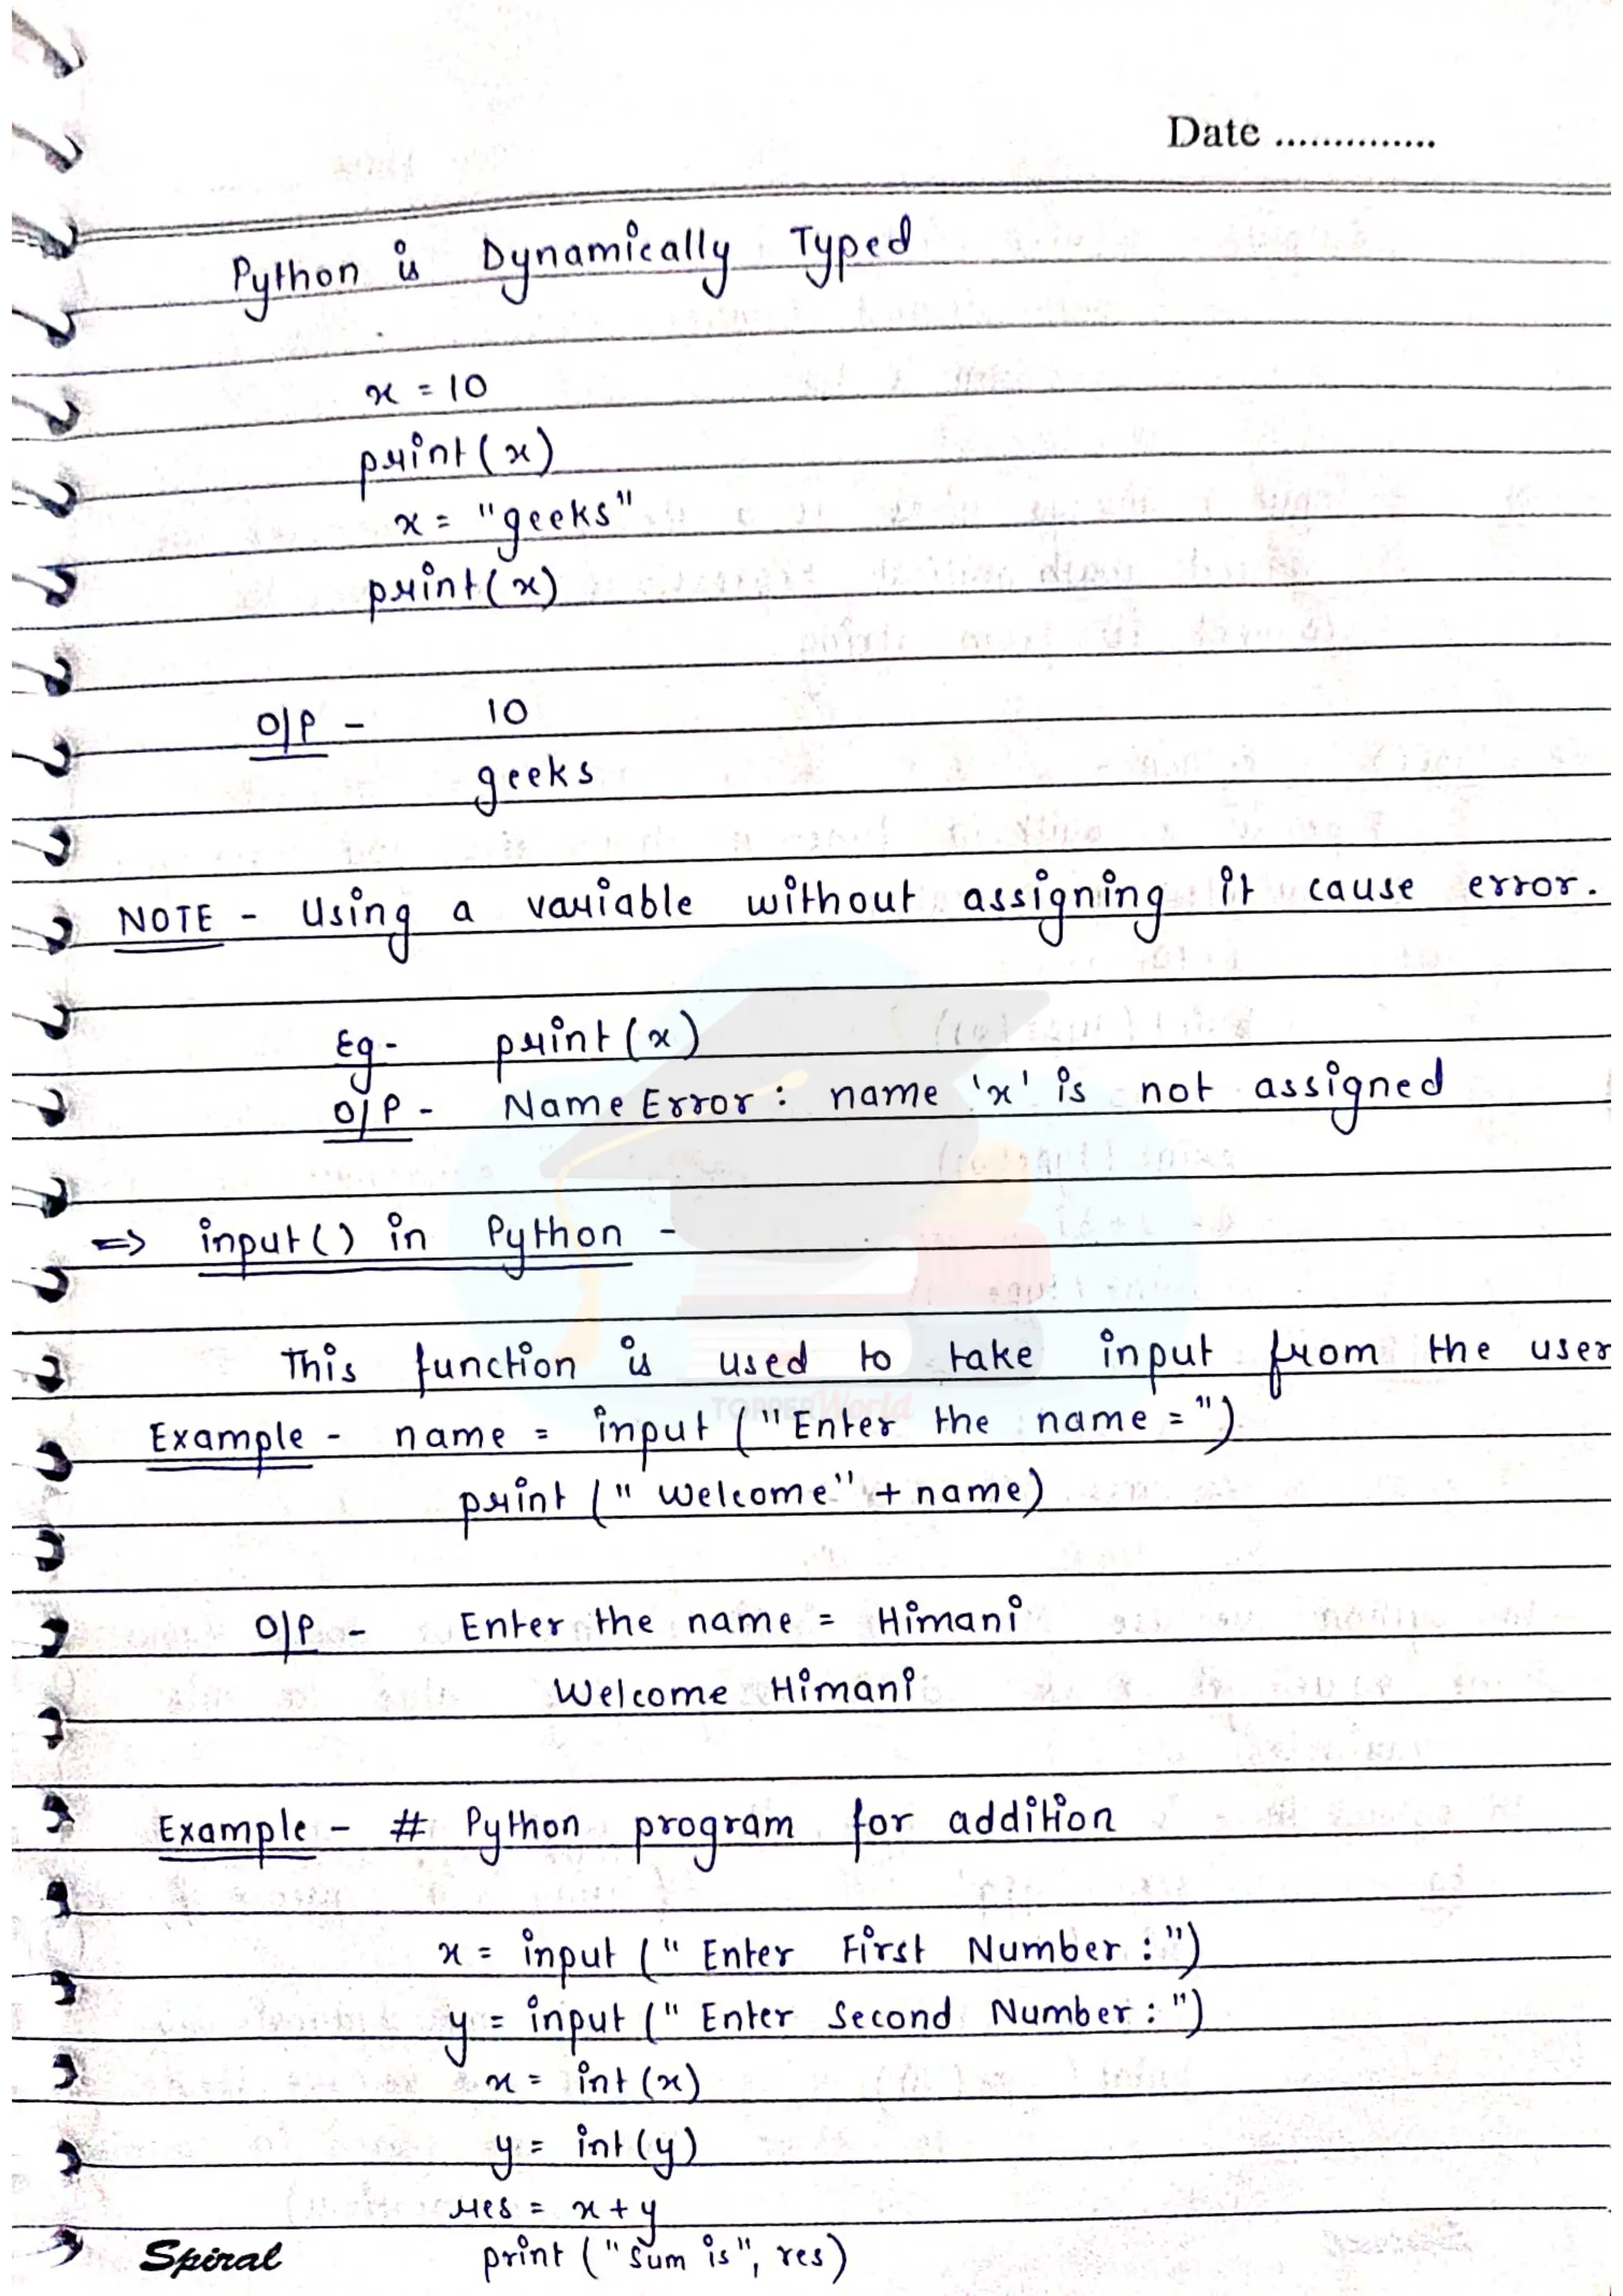 Date ..............
Python is Dynamically Typed
x = 10
print(x)
x = "geeks"
print(x)
O/P - 10
geeks
NOTE - Using a variable without assigning it cause error.
Eg - print(x)
O/P - Name Error : name 'x' is not assigned
=> input() in Python -
This function is used to take input from the user
TOPPERWorld
Example - name = input ("Enter the name = ")
print (" Welcome" + name)
O/P - Enter the name = Himani
Welcome Himani
Example - # Python program for addition
x = input (" Enter First Number : ")
y = input (" Enter Second Number : ")
x = int (x)
y = int (y)
res = x + y
print ("Sum is", res)
Spiral